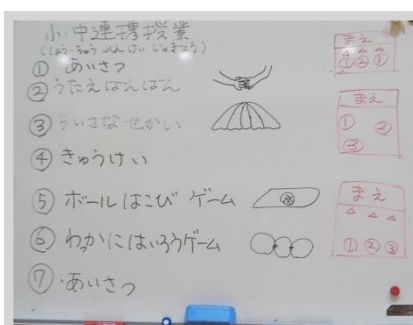 小・中連携授業
(しょう・ちゅうれんけいじゅぎょう)
① あいさつ
② うたえばんばん
③ ちいさなせかい
④ きゅうけい
⑤ ボールはこびゲーム
⑥ わっかにはいろうゲーム
⑦ あいさつ
まえ
① ② ③
まえ
① ②
③
まえ
① ② ③